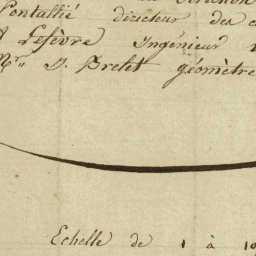 Pontallié directeur des
Lefèvre Ingénieur
Mr. J. Brelet géomètre
Echelle de 1 à 10